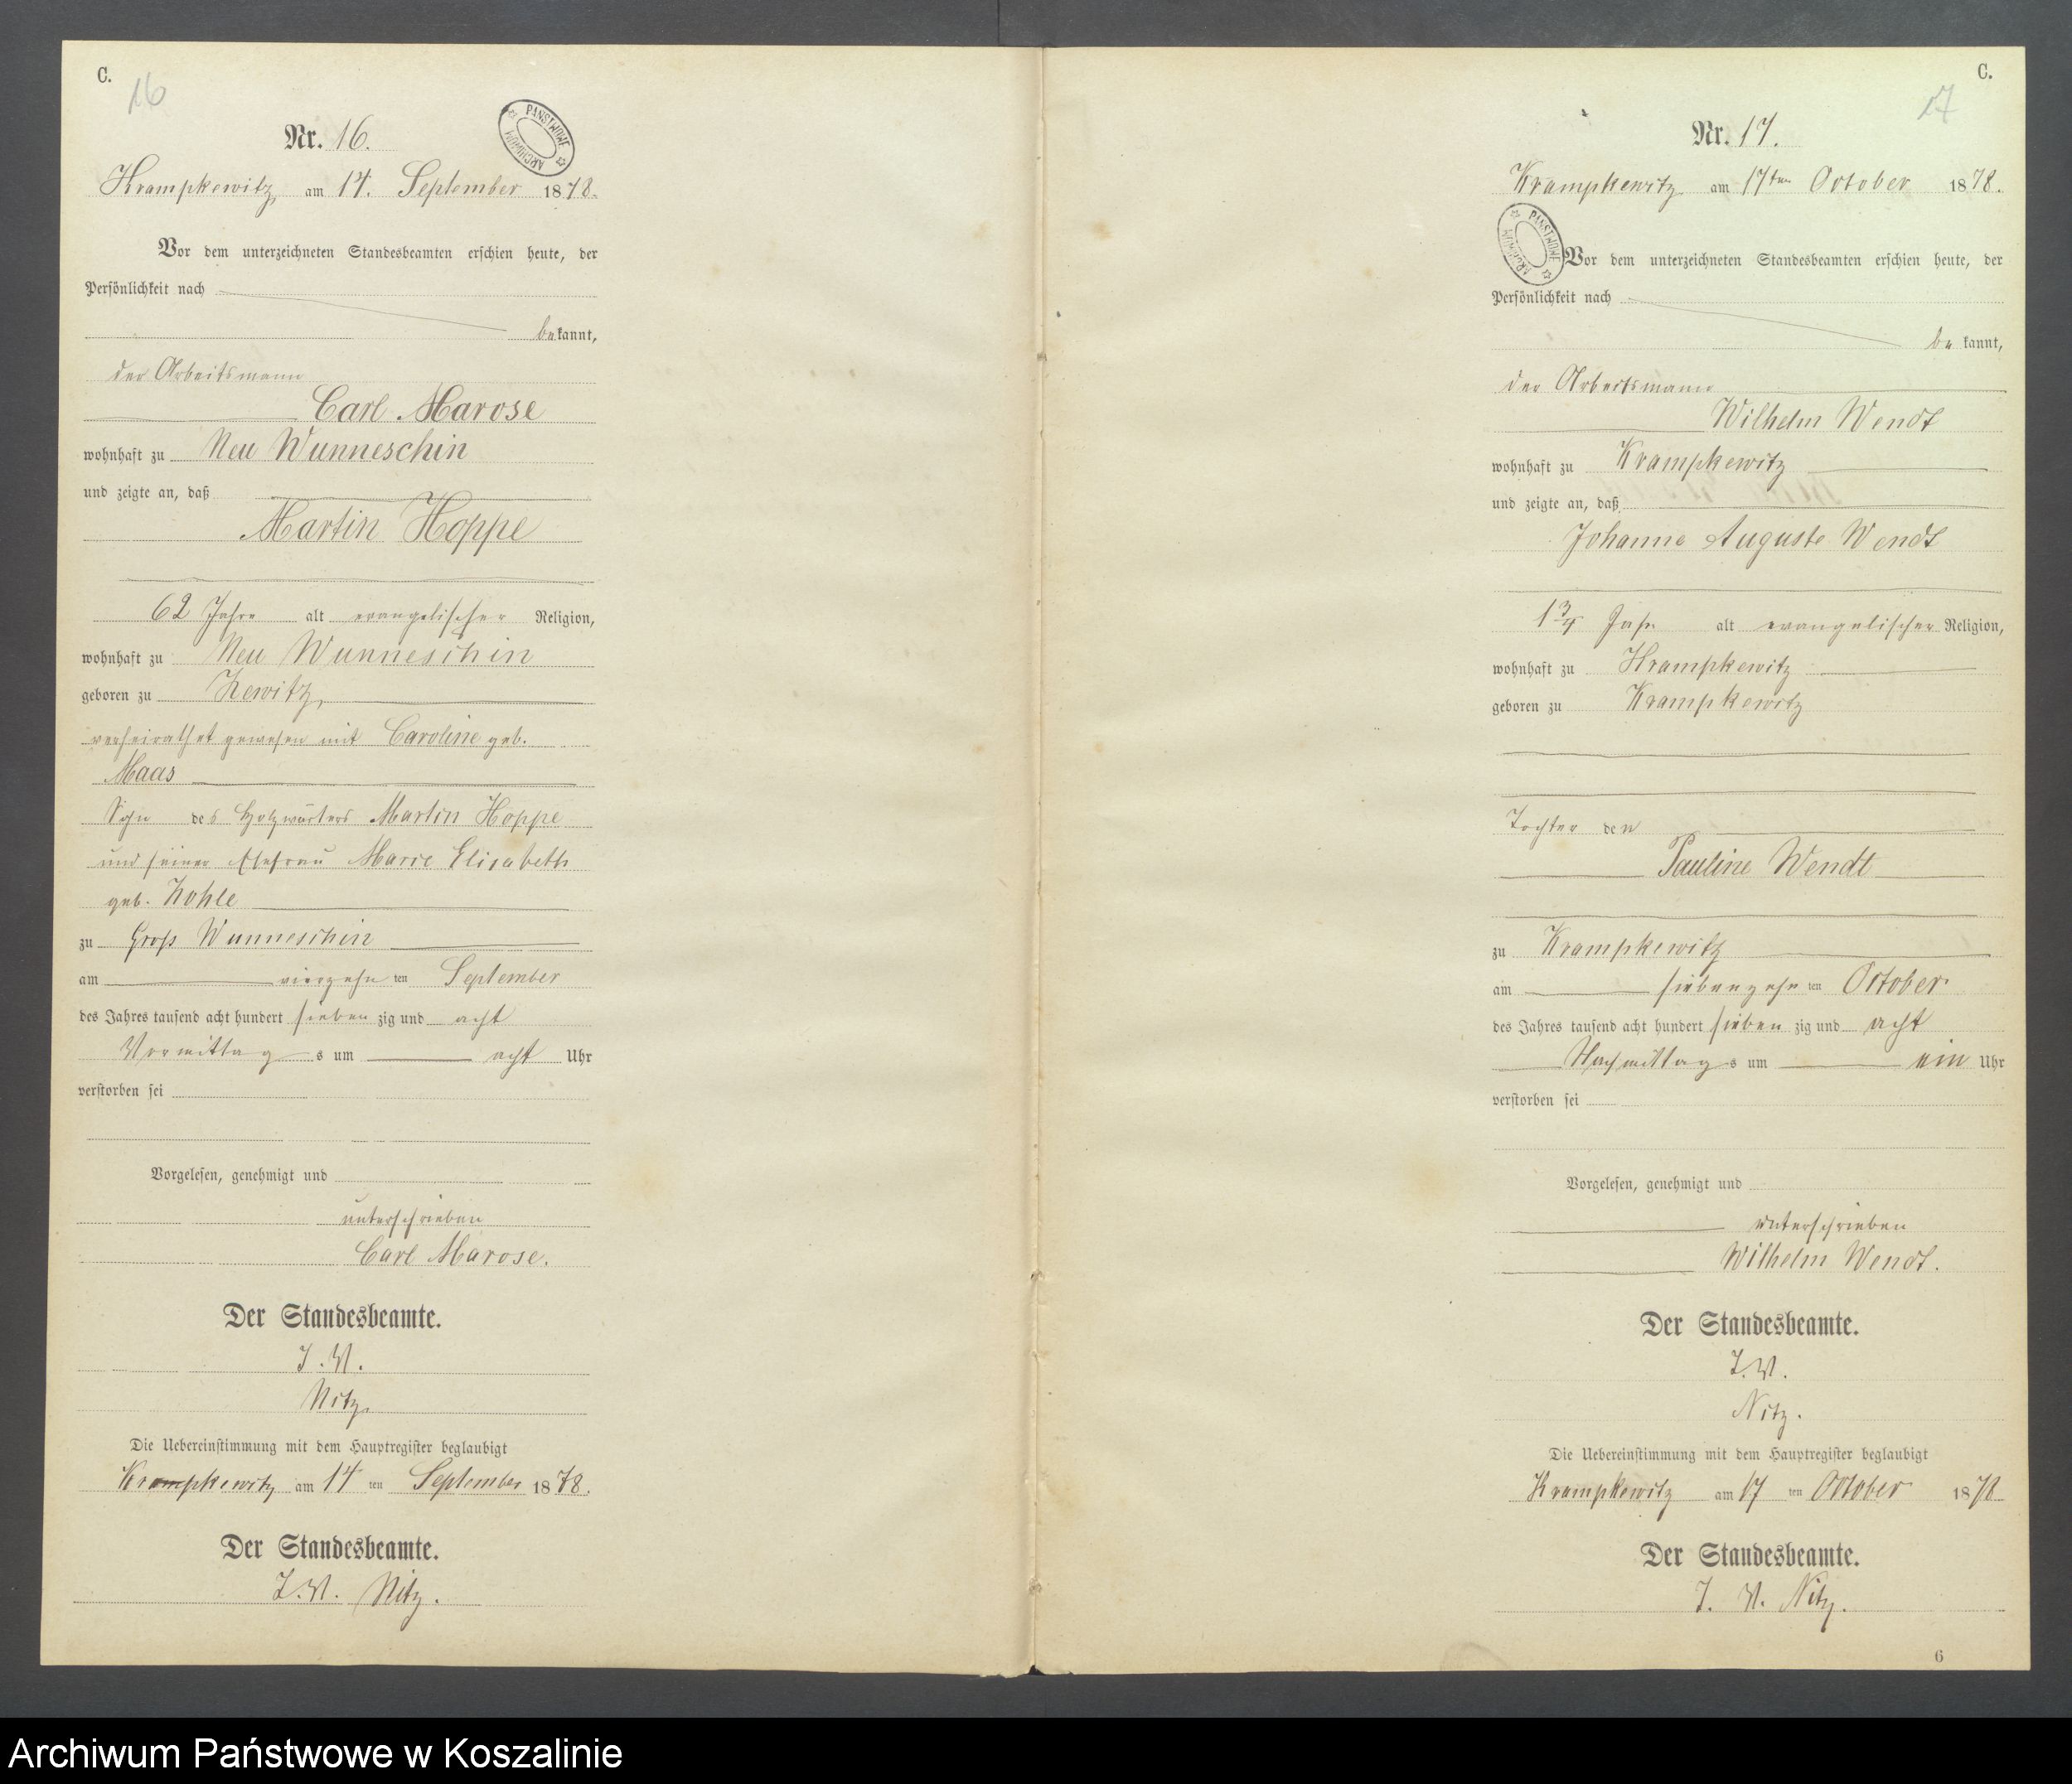 C.
16
Nr. 16.
PAŃSTWOWE ARCHIWUM
Krampkewitz am 14. September 1878.
Vor dem unterzeichneten Standesbeamten erschien heute, der
Persönlichkeit nach
bekannt,
der Arbeitsmann
Carl Marose
wohnhaft zu Neu Wunneschin
und zeigte an, daß
Martin Hoppe
62 Jahre alt evangelischer Religion,
wohnhaft zu Neu Wunneschin
geboren zu Zewitz,
verheirathet gewesen mit Caroline geb.
Maas
Sohn des Holzwärters Martin Hoppe
und seiner Ehefrau Marie Elisabeth
geb. Kohle
zu Groß Wunneschin
am vierzehn ten September
des Jahres tausend acht hundert sieben zig und acht
Vormittag s um acht Uhr
verstorben sei
Vorgelesen, genehmigt und
unterschrieben
Carl Marose.
Der Standesbeamte.
I. V.
Nitz.
Die Uebereinstimmung mit dem Hauptregister beglaubigt
Krampkewitz am 14 ten September 1878.
Der Standesbeamte.
I. V. Nitz.
C.
17
Nr. 17.
Krampkewitz am 17ten October 1878.
PAŃSTWOWE ARCHIWUM
Vor dem unterzeichneten Standesbeamten erschien heute, der
Persönlichkeit nach
be kannt,
der Arbeitsmann
Wilhelm Wendt
wohnhaft zu Krampkewitz
und zeigte an, daß
Johanne Auguste Wendt
1 3/4 Jahr alt evangelischer Religion,
wohnhaft zu Krampkewitz
geboren zu Krampkewitz
Tochter der
Pauline Wendt
zu Krampkewitz
am siebenzehn ten October
des Jahres tausend acht hundert sieben zig und acht
Nachmittag s um ein Uhr
verstorben sei
Vorgelesen, genehmigt und
unterschrieben
Wilhelm Wendt.
Der Standesbeamte.
I. V.
Nitz.
Die Uebereinstimmung mit dem Hauptregister beglaubigt
Krampkewitz am 17 ten October 1878
Der Standesbeamte.
I. V. Nitz.
6
Archiwum Państwowe w Koszalinie